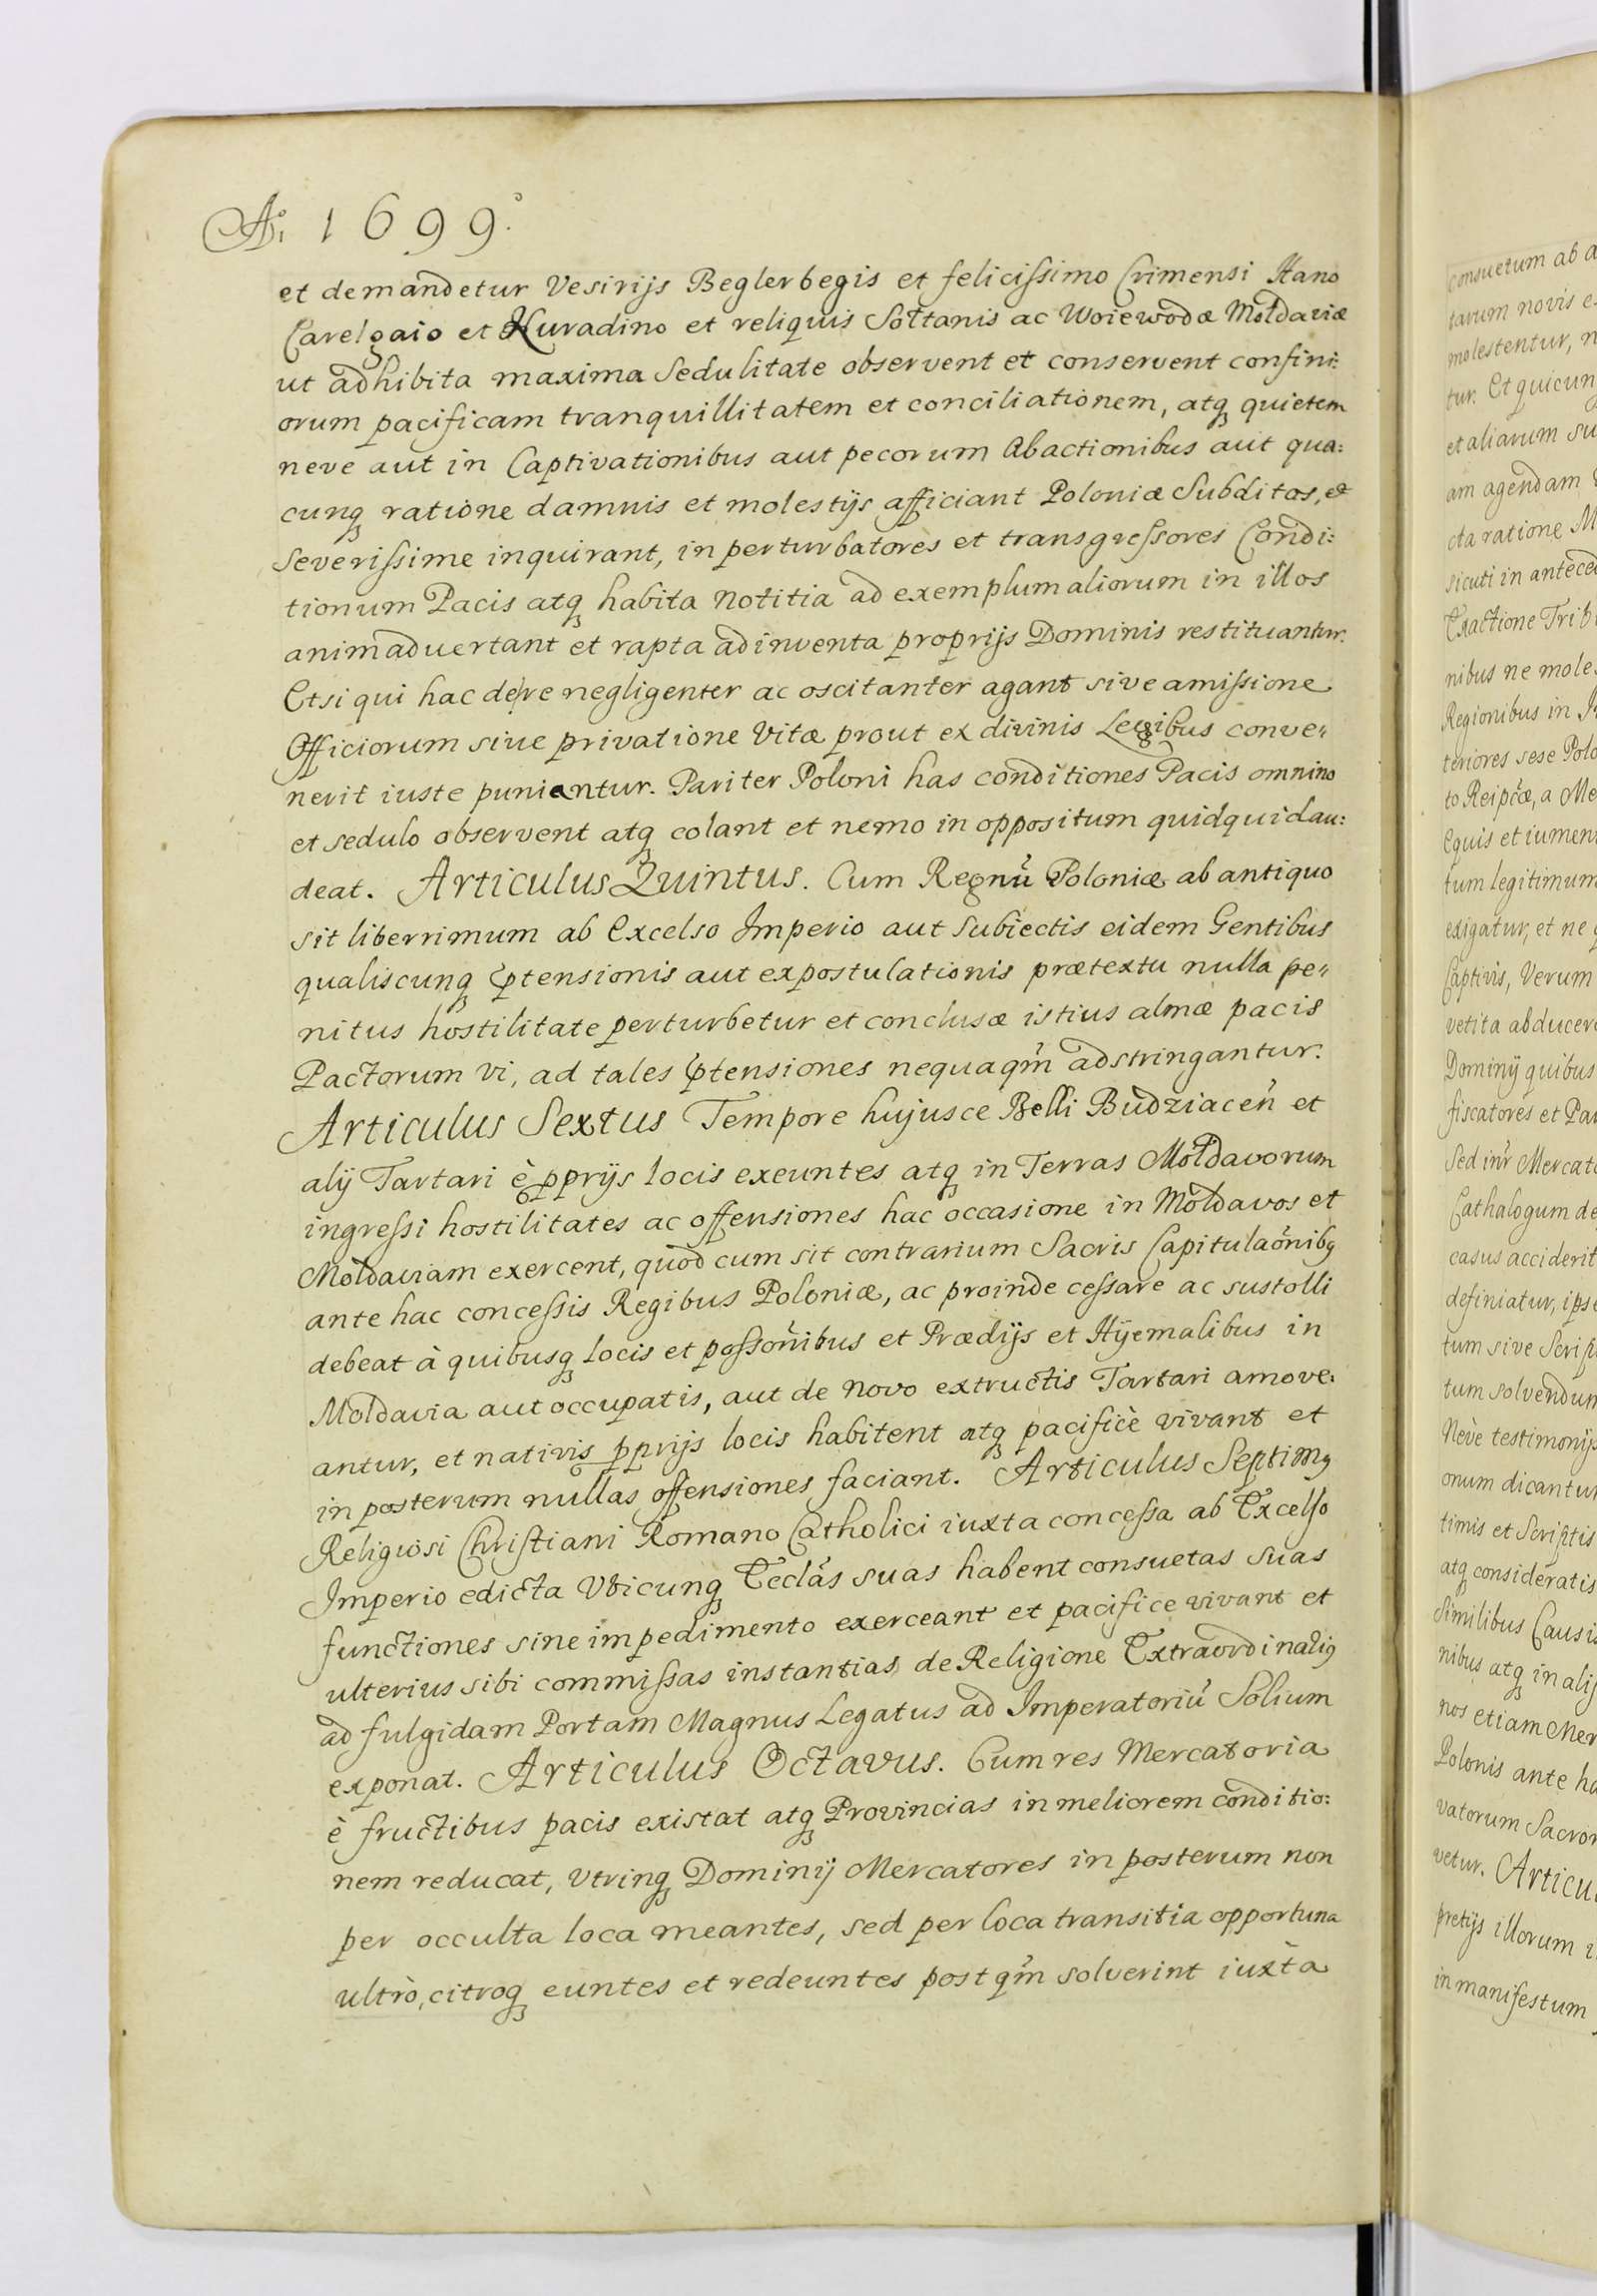 Aº. 1699º.
et demandetur Vesirijs Beglerbegis et felicissimo Crimensi Hano
Carelgaio et Kuradino et reliquis Soltanis ac Woiewodæ Moldaviæ
ut adhibita maxima Sedulitate observent et conservent confini:
orum pacificam tranquillitatem et conciliationem, atq quietem
neve aut in Captivationibus aut pecorum Abactionibus aut qua:
cunq ratione damnis et molestijs afficiant Poloniæ Subditos, et
severissime inquirant, in perturbatores et transgressores Condi:
tionum Pacis atq habita Notitia ad exemplum aliorum in illos
animadvertant et rapta adinventa proprijs Dominis restituantur.
Etsi qui hac de re negligenter ac oscitanter agant sive amissione
Officiorum sive privatione Vitæ prout ex divinis Legibus conve:
nerit iuste puniantur. Pariter Poloni has conditiones Pacis omnino
et sedulo observent atq colant et nemo in oppositum quidquid au:
deat. Articulus Quintus. Cum Regnũ Poloniæ ab antiquo
sit liberrimum ab Excelso Imperio aut Subiectis eidem Gentibus
qualiscunq p̃tensionis aut expostulationis prætextu nulla pe:
nitus hostilitate perturbetur et conclusæ istius almæ pacis
Pactorum vi, ad tales p̃tensiones nequaqm̃ adstringantur.
Articulus Sextus Tempore hujusce Belli Budziaceñ et
alij Tartari è pprijs locis exeuntes atq in Terras Moldavorum
ingressi hostilitates ac offensiones hac occasione in Moldavos et
Moldaviam exercent, quod cum sit contrarium Sacris Capitulaõnibq
ante hac concessis Regibus Poloniæ, ac proinde cessare ac sustolli
debeat à quibusq locis et possõnibus et Prædijs et Hÿemalibus in
Moldavia aut occupatis, aut de Novo extructis Tartari amove:
antur, et nativis pprijs locis habitent atq pacificè vivant et
in posterum nullas offensiones faciant. Articulus Septimq
Religiosi Christiani Romano Catholici iuxta concessa ab Excelso
Imperio edicta Vbicunq Ecclãs suas habent consuetas suas
functiones sine impedimento exerceant et pacifice vivant et
ulterius sibi commissas instantias de Religione Extraordinariq
ad fulgidam Portam Magnus Legatus ad Imperatoriũ Solium
exponat. Articulus Octavus. Cum res Mercatoria
è fructibus pacis existat atq Provincias in meliorem conditio:
nem reducat, Vtrinq Dominij Mercatores in posterum non
per occulta loca meantes, sed per loca transitia opportuna
ultrò, citroq euntes et redeuntes postqm̃ solverint iuxta
consuetum ab
tarum novis
molestentur,
tur. Et quicun
et aliarum su
am agendam
cta ratione M
sicuti in anteced
Exactione Trib
nibus ne moles
Regionibus in
teriores sese Polo
to Reipcæ, a Me
Equis et iumen
tum legitimum
exigatur, et ne
Captivis, Verum
vetita abducer
Dominij quibus
fiscatores et Par
Sed inr Mercato
Cathalogum de
casus acciderit
definiatur, ipse
tum sive Script
tum solvendum
Nève testimonijs
onum dicantur
timis et Scriptis
atq consideratis
Similibus Causis
nibus atq in alijs
nos etiam Mer
Polonis ante ha
vatorum Sacror
vetur. Articul
pretijs illorum
in manifestum